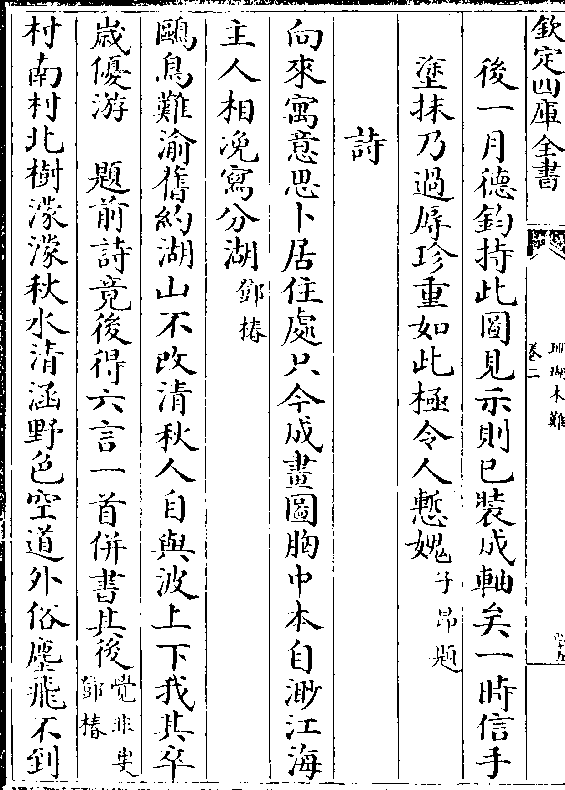 欽定四庫全書
珊瑚木難
卷二
後一月德鈞持此圖見示則已裝成軸矣一時信手
塗抹乃過辱珍重如此極令人慙媿子昂題
詩
向來寓意思卜居住處只今成畫圖胸中本自渺江海
主人相浼寫分湖鄧椿
鷗鳥難渝舊約湖山不改清秋人自與波上下我其卒
歲優游 題前詩竟後得六言一首併書其後覺非叟鄧椿
村南村北樹濛濛秋水清涵野色空道外俗塵飛不到